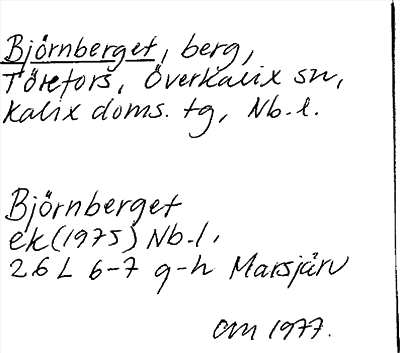 Björnberget, berg,
Törefors, Överkalix sn,
Kalix doms. tg, Nb.l.
Björnberget
ek (1975) Nb.l.
26 L 6-7 g-h Marsjärv
OM 1977.